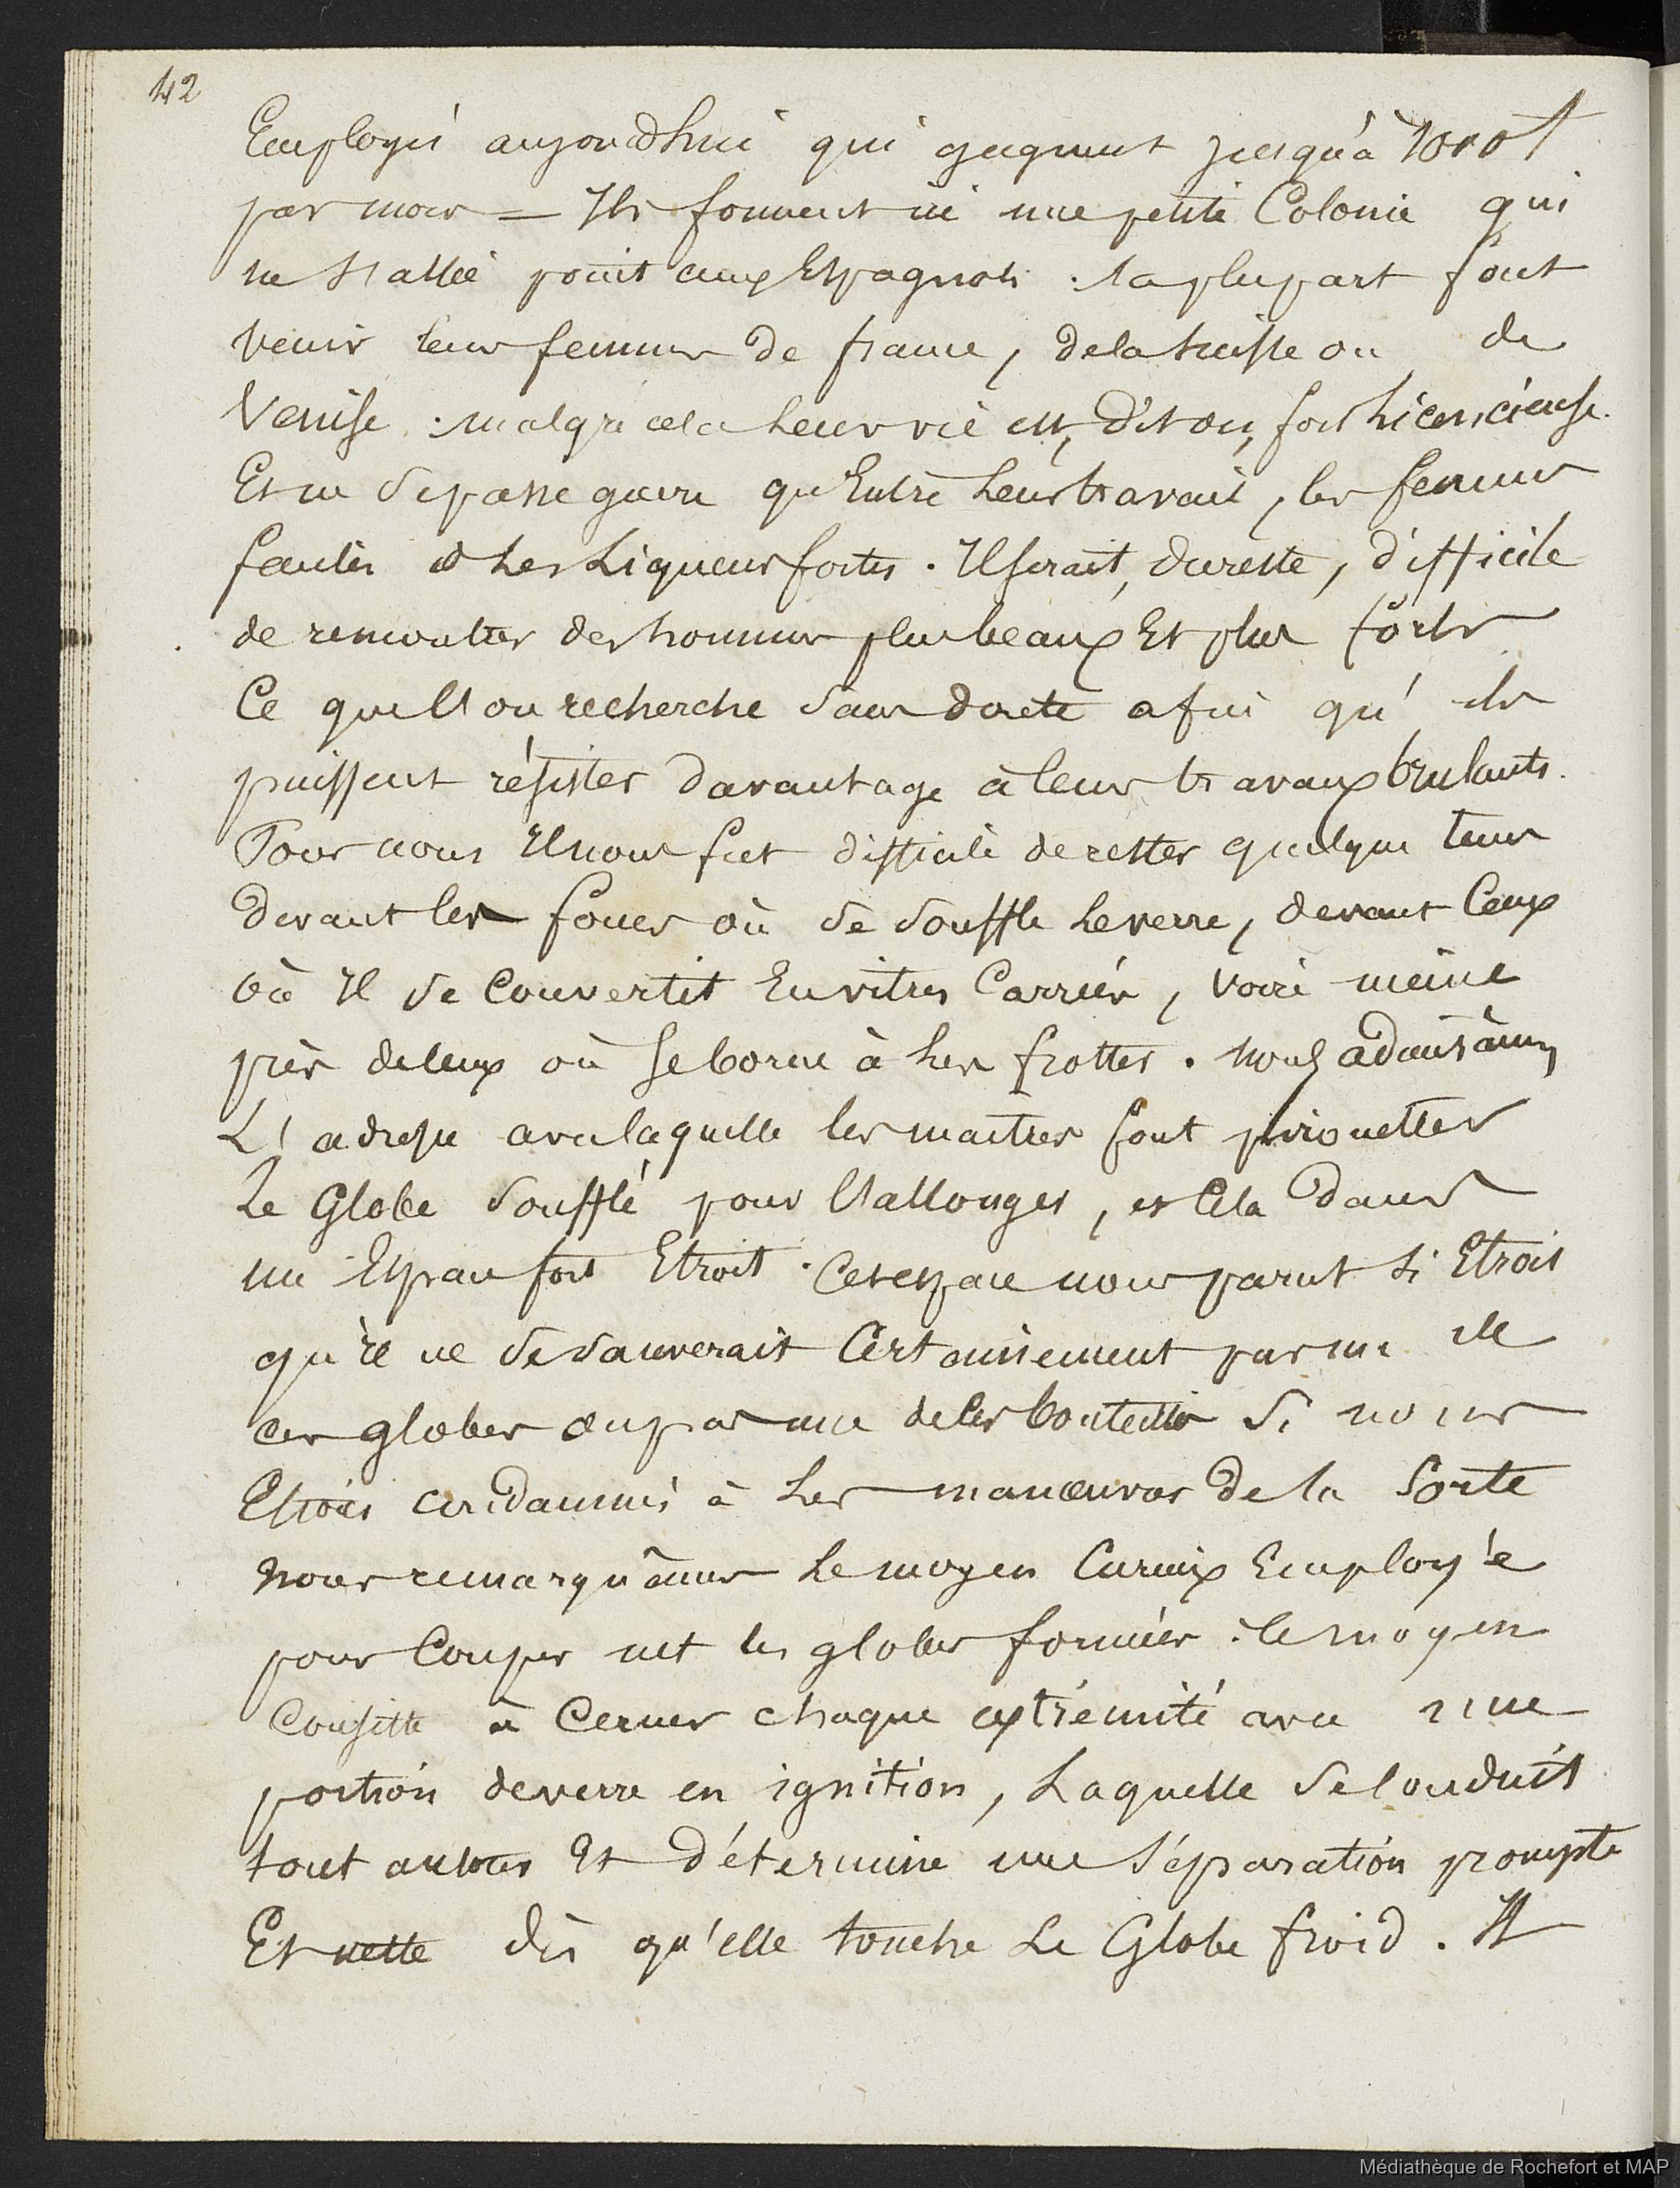 42
Employés aujourdhui qui gagnent jusqu'à 1000 f
par mois — Ils forment ici une petite Colonie qui
ne s'allie point aux Espagnols . la plupart font
venir leurs femmes de france, de la suisse ou de
Venise . malgré cela leur vie est, dit on, fort licencieuse.
Et ne se passe guere qu'Entre leur travail, les femmes
faciles et les Liqueurs fortes . Il serait, dureste, difficile
de rencontrer des hommes plus beaux Et plus forts
Ce que l'on recherche sans doute afin qu'ils
puissent résister davantage à leurs travaux brulants.
Pour nous Il nous fut difficile de rester quelque tems
devant les fours où se souffle le verre, devant Ceux
où Il se Convertit En vitres Carrées, voire même
près de ceux où se borne à les frotter . nous admirâmes
L'adresse avec laquelle les maitres font pirouetter
Le Globe soufflé pour l'allonger, et Cela dans
un Espace fort Etroit . Cet espace nous parut si Etroit
qu'il ne se sauverait Certainement pas un de
ces globes ou pas une de les bouteilles si nous
Etions condamnés à les manœuvrer de la sorte
nous remarquâmes le moyen Curieux Employé
pour Couper net les globes formés : le moyen
Consiste à Cerner chaque extrémité avec une
portion de verre en ignition, Laquelle se conduit
tout autour Et détermine une séparation prompte
Et nette dès qu'elle touche Le Globe froid . Il
Médiathèque de Rochefort et MAP